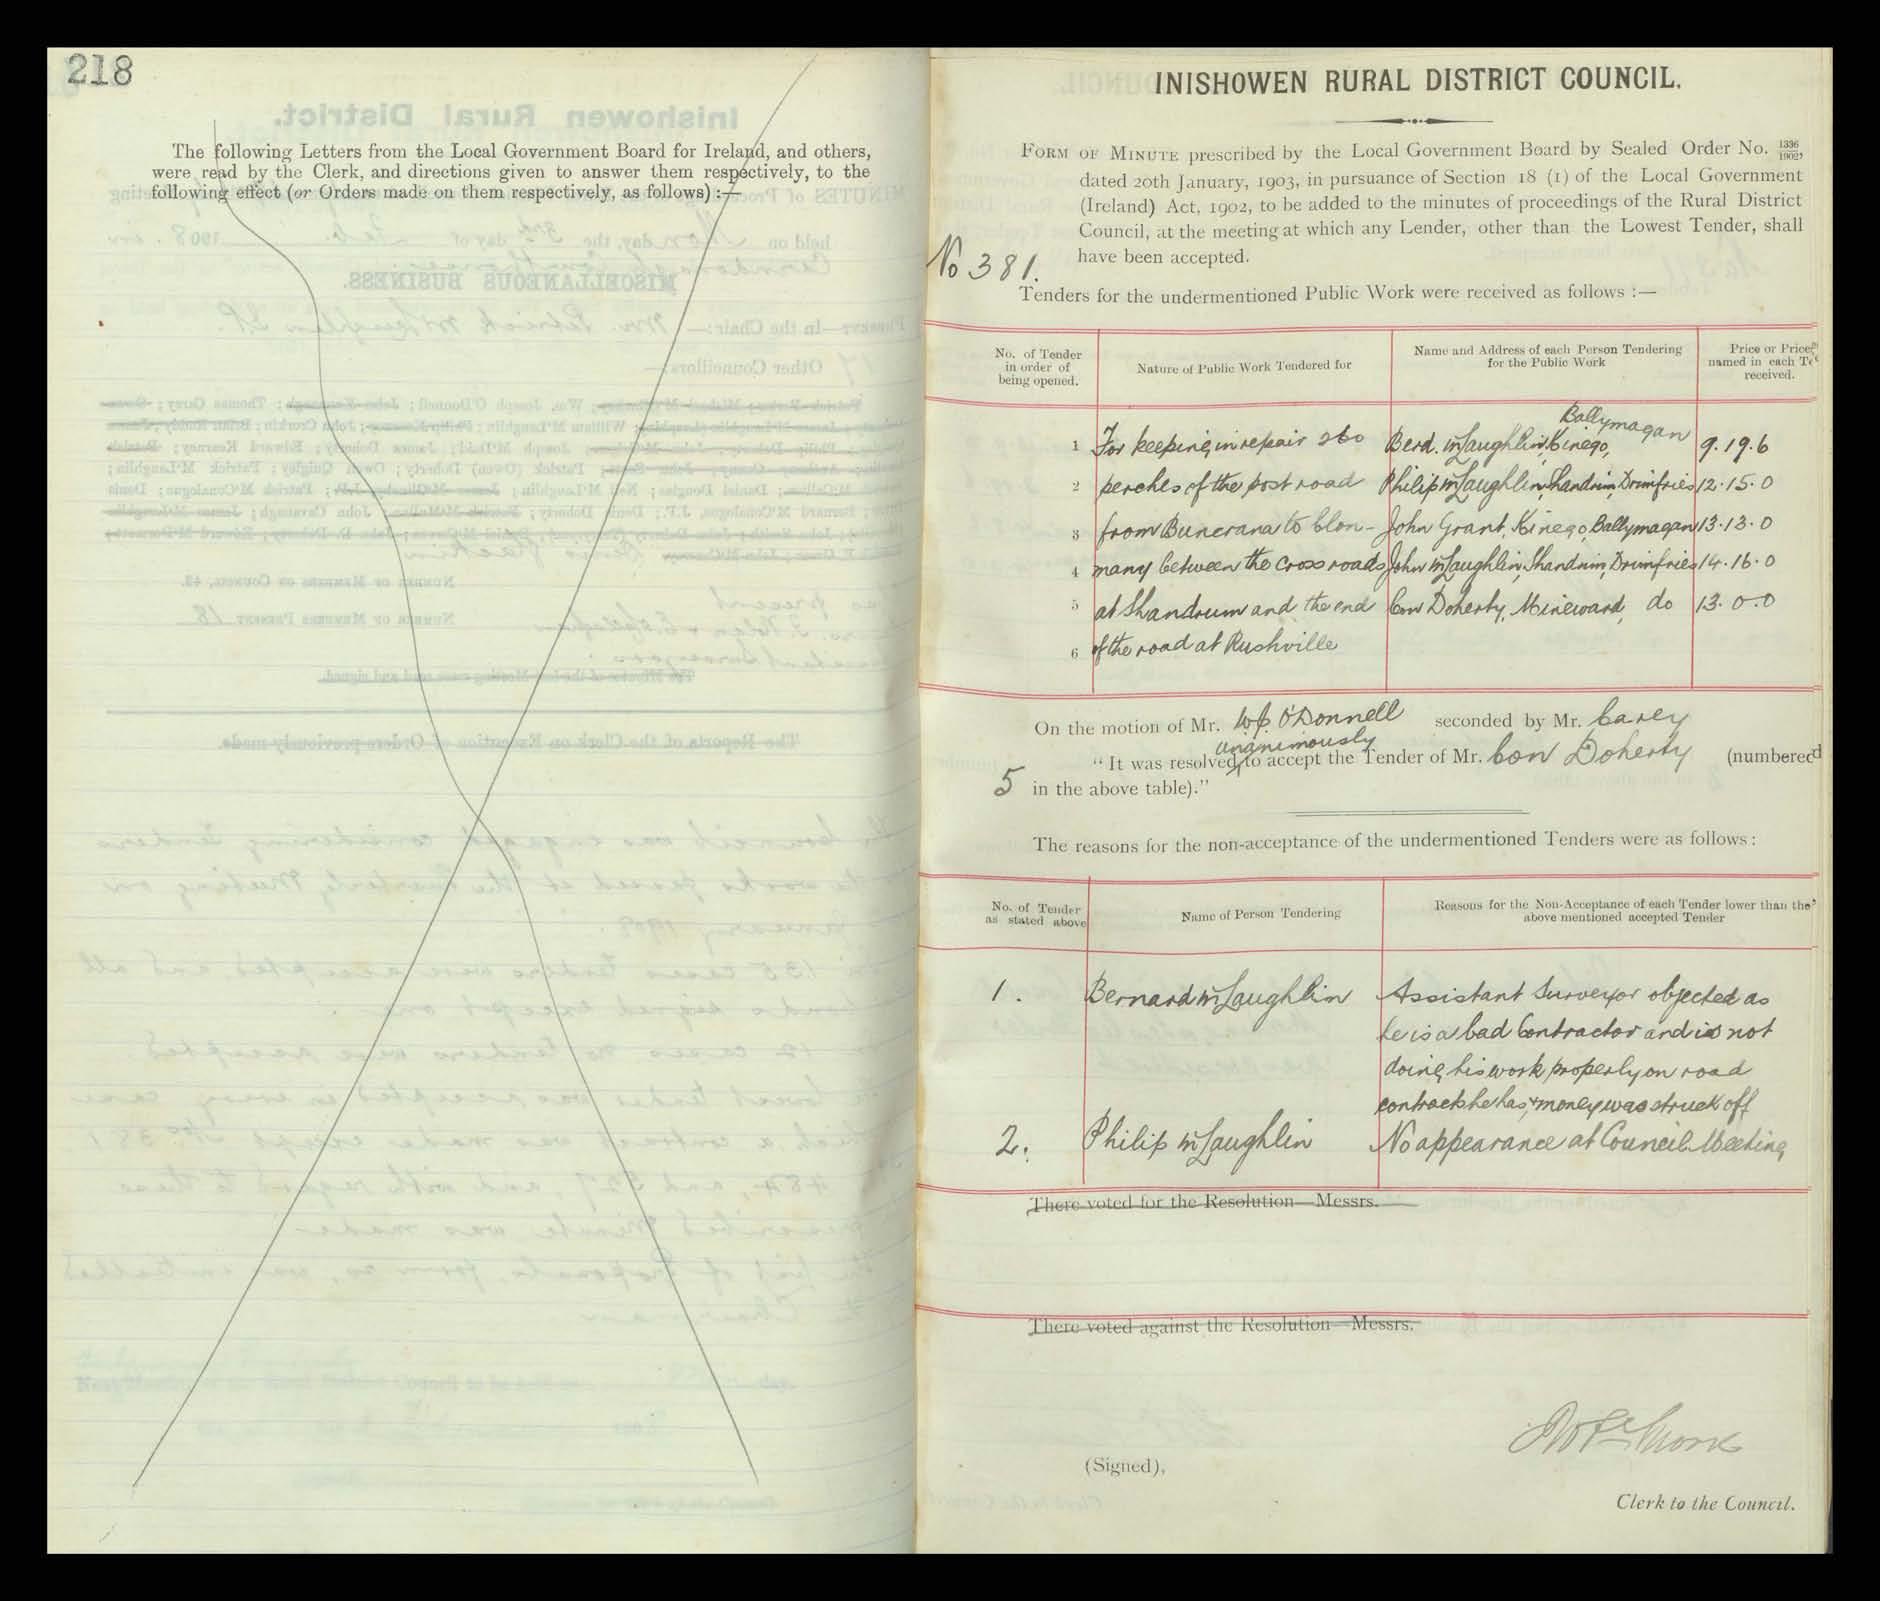 218
The following Letters from the Local Government Board for Ireland, and others,
were read by the Clerk, and directions given to answer them respectively, to the
following effect (or Orders made on them respectively, as follows) :—
INISHOWEN RURAL DISTRICT COUNCIL.
FORM OF MINUTE prescribed by the Local Government Board by Sealed Order No. 1336/1902,
dated 20th January, 1903, in pursuance of Section 18 (1) of the Local Government
(Ireland) Act, 1902, to be added to the minutes of proceedings of the Rural District
Council, at the meeting at which any Lender, other than the Lowest Tender, shall
have been accepted.
No 381.
Tenders for the undermentioned Public Work were received as follows :—
No. of Tender in order of being opened. Nature of Public Work Tendered for Name and Address of each Person Tendering for the Public Work Price or Prices named in each received.
Ballymagan
1 For keeping in repair 260 Berd. McLaughlin, Kinego, 9.19.6
2 perches of the post road Philip McLaughlin, Shandrim, Drimfries 12.15.0
3 from Buncrana to Clon- John Grant, Kinego, Ballymagan 13.13.0
4 many between the cross roads John McLaughlin, Shandrim, Drimfries 14.16.0
5 at Shandrum and the end Con Doherty, Mineward, do 13.0.0
6 of the road at Rushville
On the motion of Mr. W.J. O'Donnell seconded by Mr. Carey
unanimously
"It was resolved, to accept the Tender of Mr. Con Doherty (numbered
5 in the above table)."
The reasons for the non-acceptance of the undermentioned Tenders were as follows :
No. of Tender as stated above Name of Person Tendering Reasons for the Non-Acceptance of each Tender lower than the above mentioned accepted Tender
1. Bernard McLaughlin Assistant Surveyor objected as
he is a bad Contractor and is not
doing his work properly on road
contracts he has, & money was struck off
2. Philip McLaughlin No appearance at Council Meeting
There voted for the Resolution—Messrs.
There voted against the Resolution—Messrs.
(Signed),
Clerk to the Council.